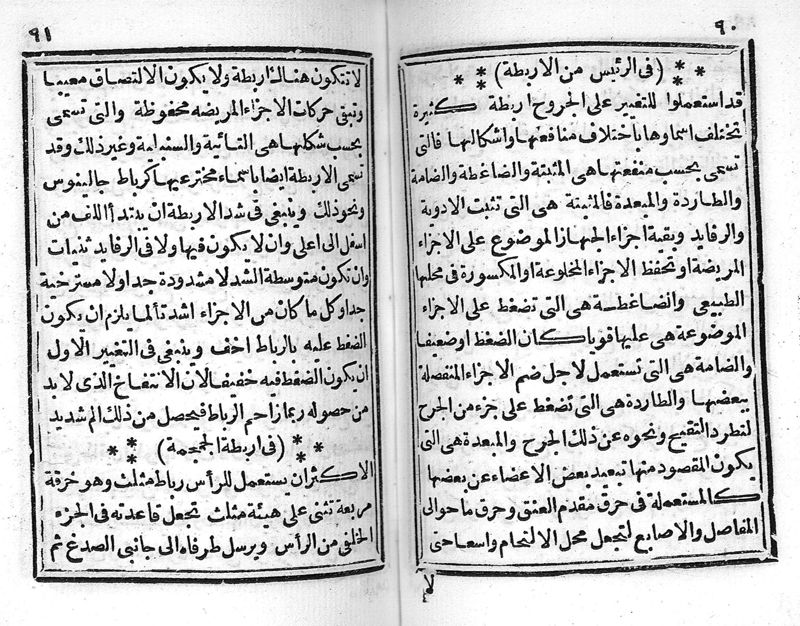 ٩٠
* * (فى الرئيس من الاربطة) * *
قد استعملوا للتغيير على الجروح اربطة كثيرة
تختلف اسماوها باختلاف منافعها واشكالها فالتى
تسمى بحسب منفعتها هى المثبتة والضاغطة والضامة
والطاردة والمبعدة فالمثبتة هى التى تثبت الادوية
والرفايد وبقية اجزاء الجهاز الموضوع على الاجزاء
المريضة او تحفظ الاجزاء المخلوعة او المكسورة فى محلها
الطبيعى والضاغطة هى التى تضغط على الاجزاء
الموضوعة هى عليها قويا كان الضغط او ضعيفا
والضامة هى التى تستعمل لاجل ضم الاجزاء المنفصلة
ببعضها والطاردة هى التى تضغط على جزء من الجرح
لتطرد التقيح ونحوه عن ذلك الجرح والمبعدة هى التى
يكون المقصود منها تبعيد بعض الاعضاء عن بعضها
كالمستعملة فى حرق مقدم العنق وحرق ما حوالى
المفاصل والاصابع لتجعل محل الالتحام واسعا حتى
لا
٩١
لا تتكون هناك اربطة ولا يكون الالتصاق معيبا
وتبقى حركات الاجزاء المريضه محفوظة والتى تسمى
بحسب شكلها هى التائية والسندابية وغير ذلك وقد
تسمى الاربطة ايضا باسماء مخترعيها كرباط جالينوس
ونحو ذلك وينبغى فى شد الاربطة ان يبتدأ اللف من
اسفل الى اعلى وان لا يكون فيها ولا فى الرفايد ثنيات
وان تكون متوسطة الشد لا مشدودة جدا ولا مسترخية
جدا وكل ما كان من الاجزاء اشد تألما يلزم ان يكون
الضغط عليه بالرباط اخف وينبغى فى التغيير الاول
ان يكون الضغط فيه خفيفا لان الانتفاخ الذى لا بد
من حصوله ربما زاحم الرباط فيحصل من ذلك الم شديد
* * (فى اربطة الجمجمة) * *
الاكثر ان يستعمل للرأس رباط مثلث وهو خرقة
مربعة تثنى على هيئة مثلث تجعل قاعدته فى الجزء
الخلفى من الرأس ويرسل طرفاه الى جانبى الصدغ ثم